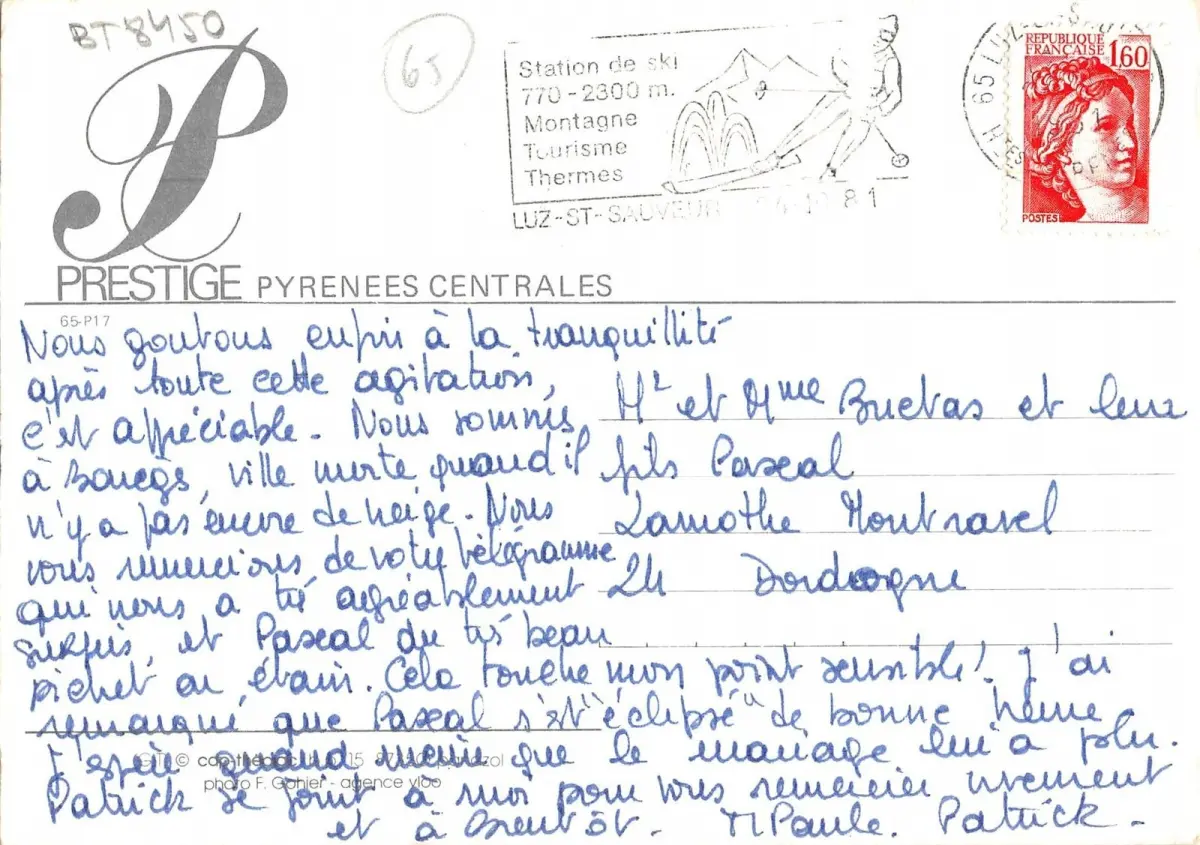 BT 8450
65
Station de ski
770-2300 m.
Montagne
Tourisme
Thermes
LUZ-ST-SAUVEUR 10 81
65 LUZ
REPUBLIQUE
FRANÇAISE 1,60
POSTES
P
PRESTIGE PYRENEES CENTRALES
65-P17
Nous goutons enfin à la tranquillité
après toute cette agitation,
c'est appréciable. Nous sommes
à Barèges, ville morte quand il
n'y a pas encore de neige. Nous
vous remercions de votre télégramme
qui nous a très agréablement
surpris, et Pascal du très beau
pichet en étain. Cela touche mon point sensible! J'ai
remarqué que Pascal s'est "éclipsé" de bonne heure
J'espère quand même que le mariage lui a plu.
Patrick se joint à moi pour vous remercier vivement
et à bientôt. M Paule. Patrick.
Mr et Mme Buetas et leur
fils Pascal
Lamothe Montravel
24 Dordogne
photo F. Gohier - agence vloo